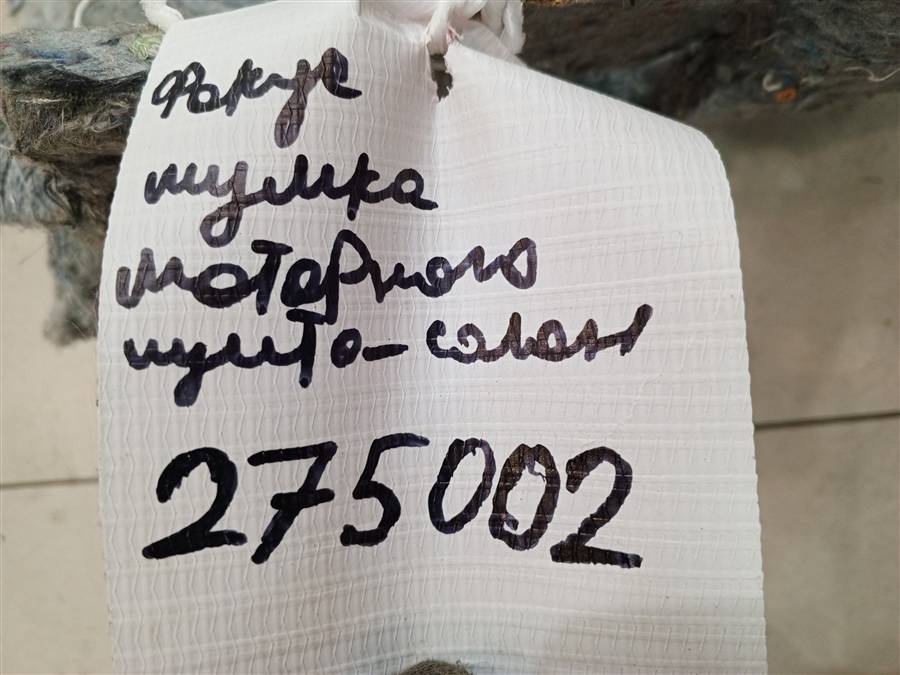 Фокус
шумка
моторного
щита-салон
275002